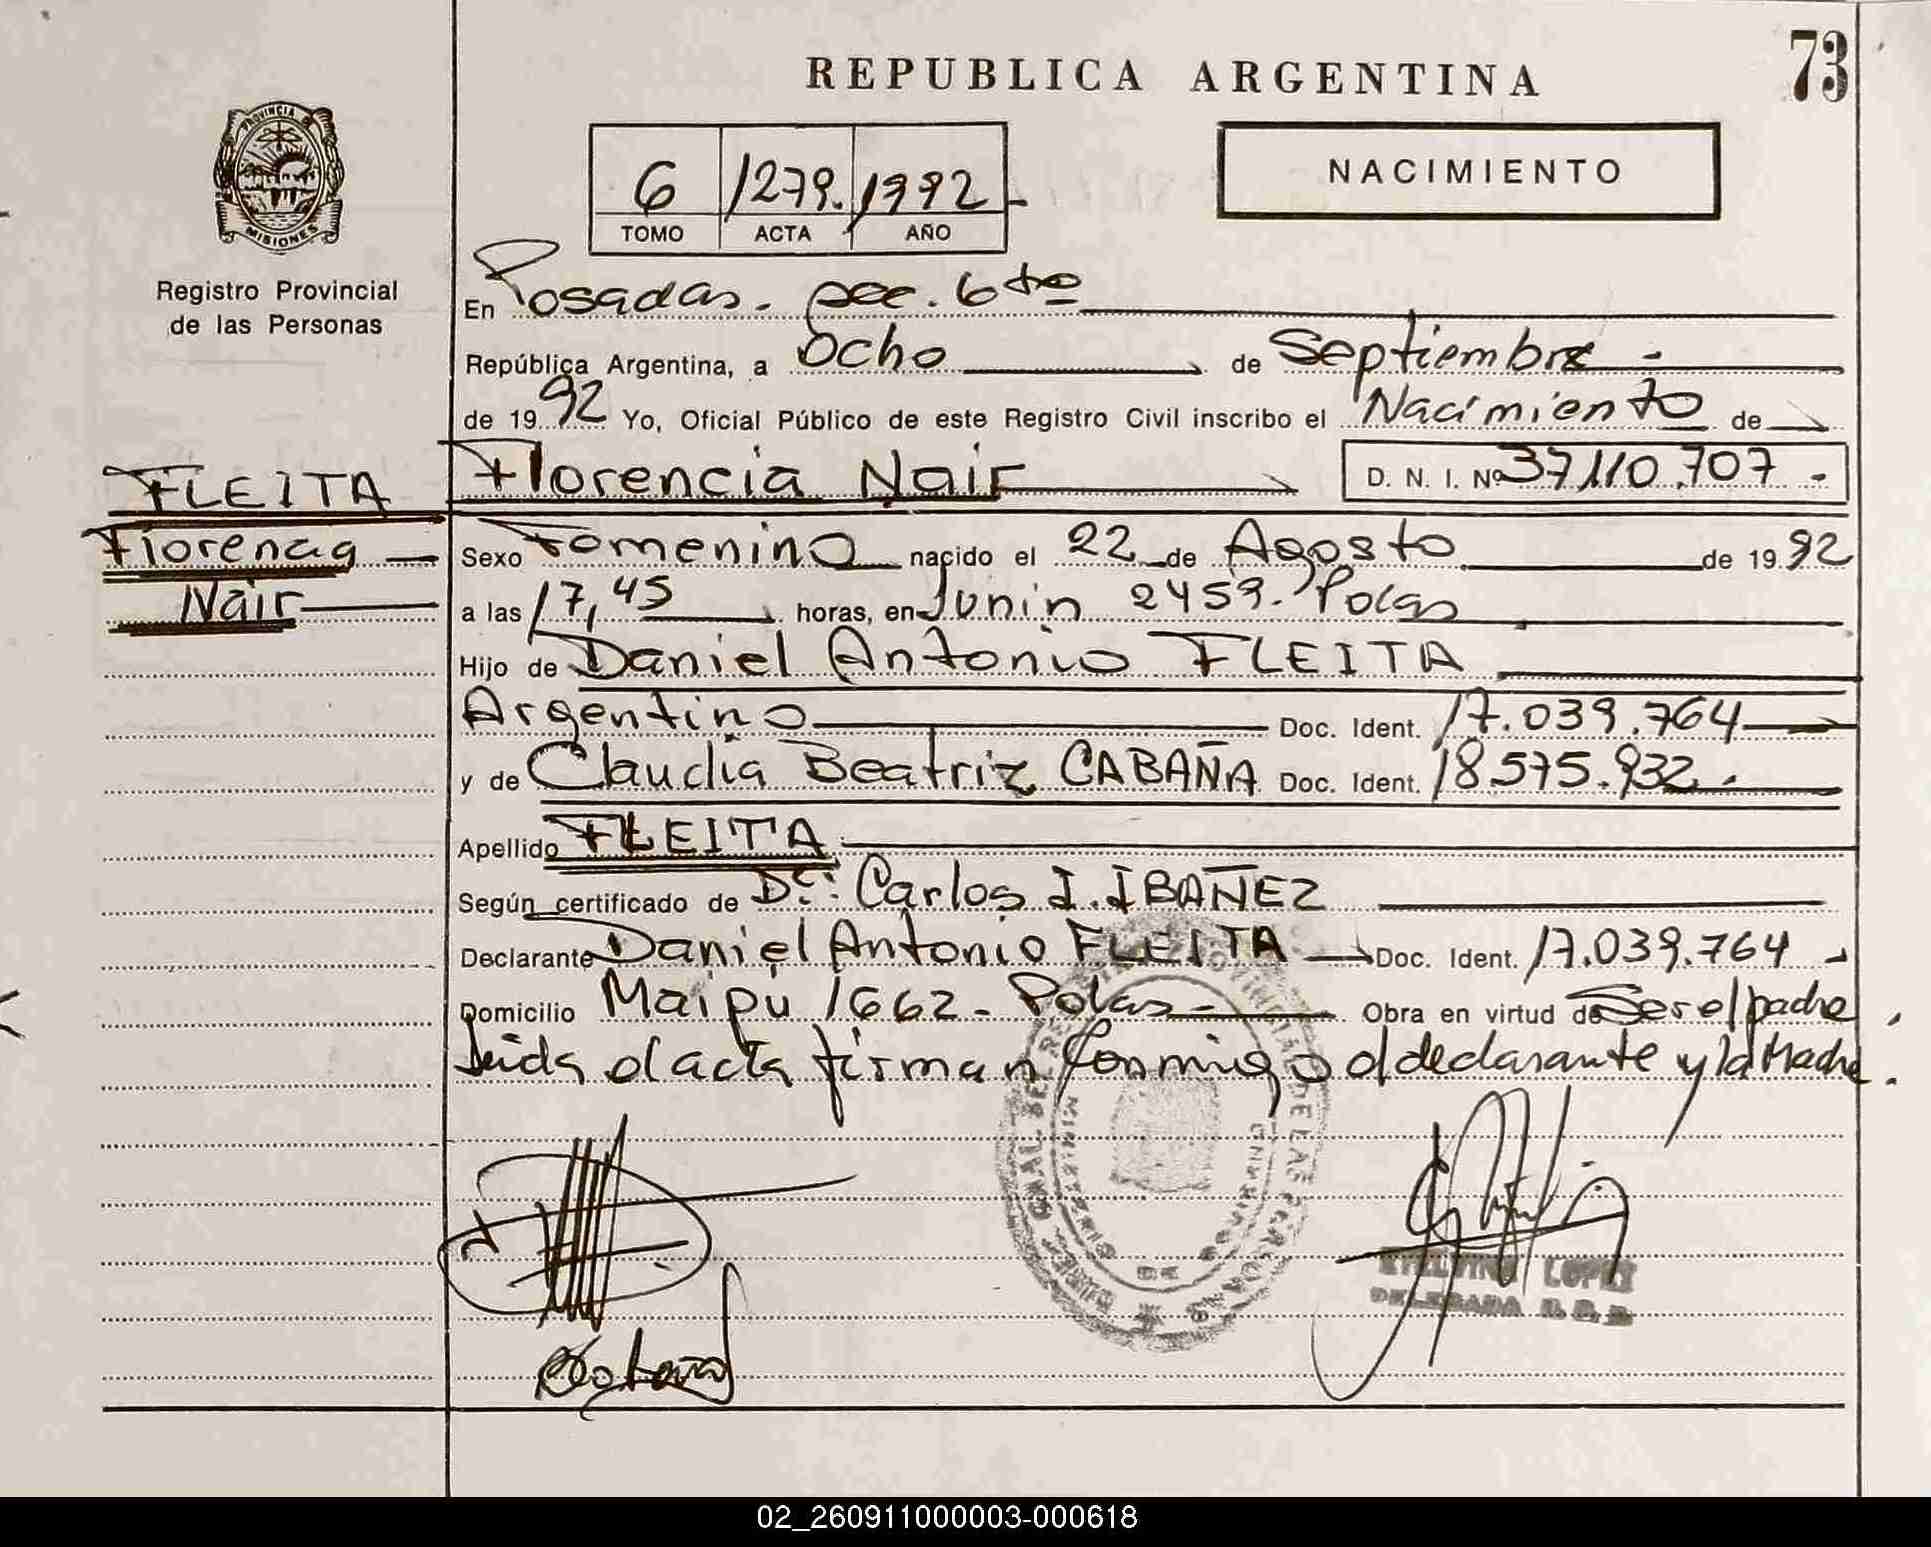 REPUBLICA ARGENTINA
73
PROVINCIA
MISIONES
Registro Provincial
de las Personas
6 1279. 1992
TOMO ACTA AÑO
NACIMIENTO
En Posadas. sec. 6to
República Argentina, a Ocho de Septiembre -
de 1992 Yo, Oficial Público de este Registro Civil inscribo el Nacimiento de
Florencia Nair D. N. I. Nº 37110.707 -
FLEITA
Florencia
Nair
Sexo Femenino nacido el 22 de Agosto de 1992
a las 17,45 horas, en Junin 2459. Pdas
Hijo de Daniel Antonio FLEITA
Argentino Doc. Ident. 17.039.764
y de Claudia Beatriz CABAÑA Doc. Ident. 18575.932.
Apellido FLEITA
Según certificado de Dr. Carlos I. IBAÑEZ
Declarante Daniel Antonio FLEITA Doc. Ident. 17.039.764
Domicilio Maipú 1662 - Pdas - Obra en virtud de Ser el padre,
leida el acta firman conmigo el declarante y la Madre.
LOPEZ
DELEGADA
02_260911000003-000618